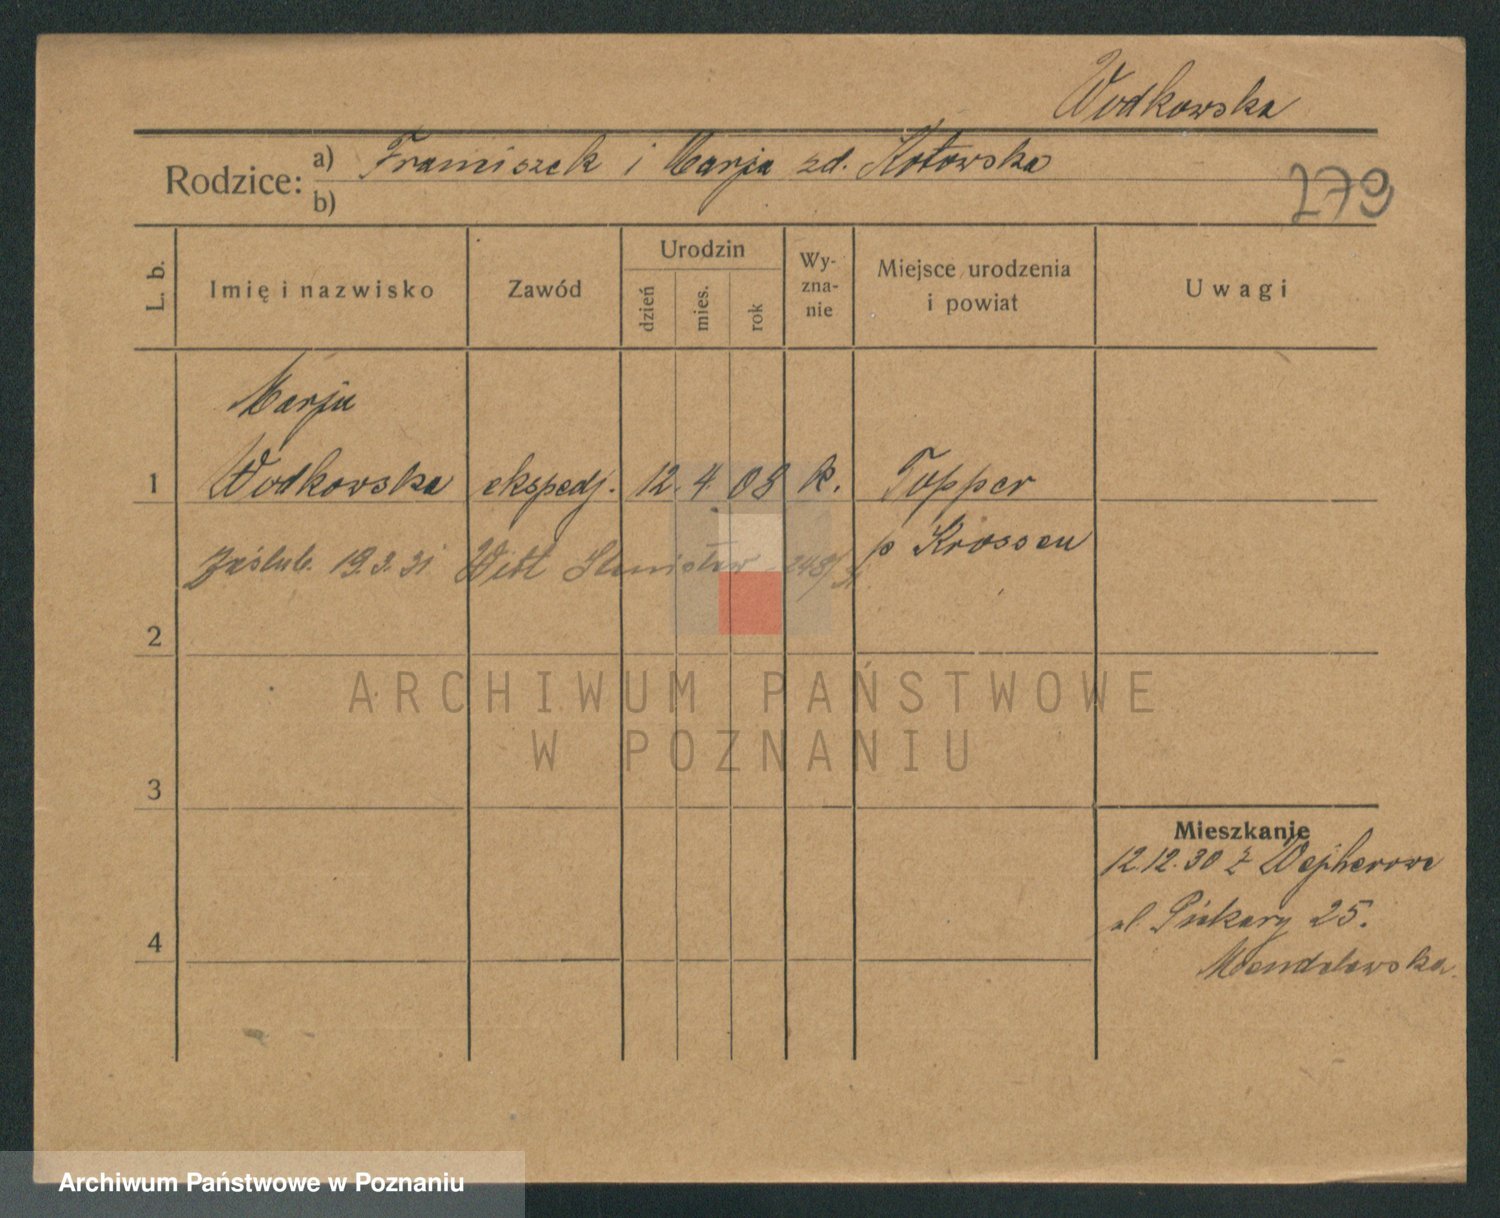 Wodkowska
Rodzice: a) Franciszek i Marja zd. Kotowska
b)
279
L. b.
Imię i nazwisko
Zawód
Urodzin
dzień
mies.
rok
Wy-
zna-
nie
Miejsce urodzenia
i powiat
Uwagi
Marja
1 Wodkowska ekspedj. 12. 4 08 k. Topper
p Krossen
Zaślub. 19.3.31 Stanisław
2
3
4
Mieszkanie
12.12.30 z Wejherowa
ul. Piekary 25.
ARCHIWUM PAŃSTWOWE
W POZNANIU
Archiwum Państwowe w Poznaniu